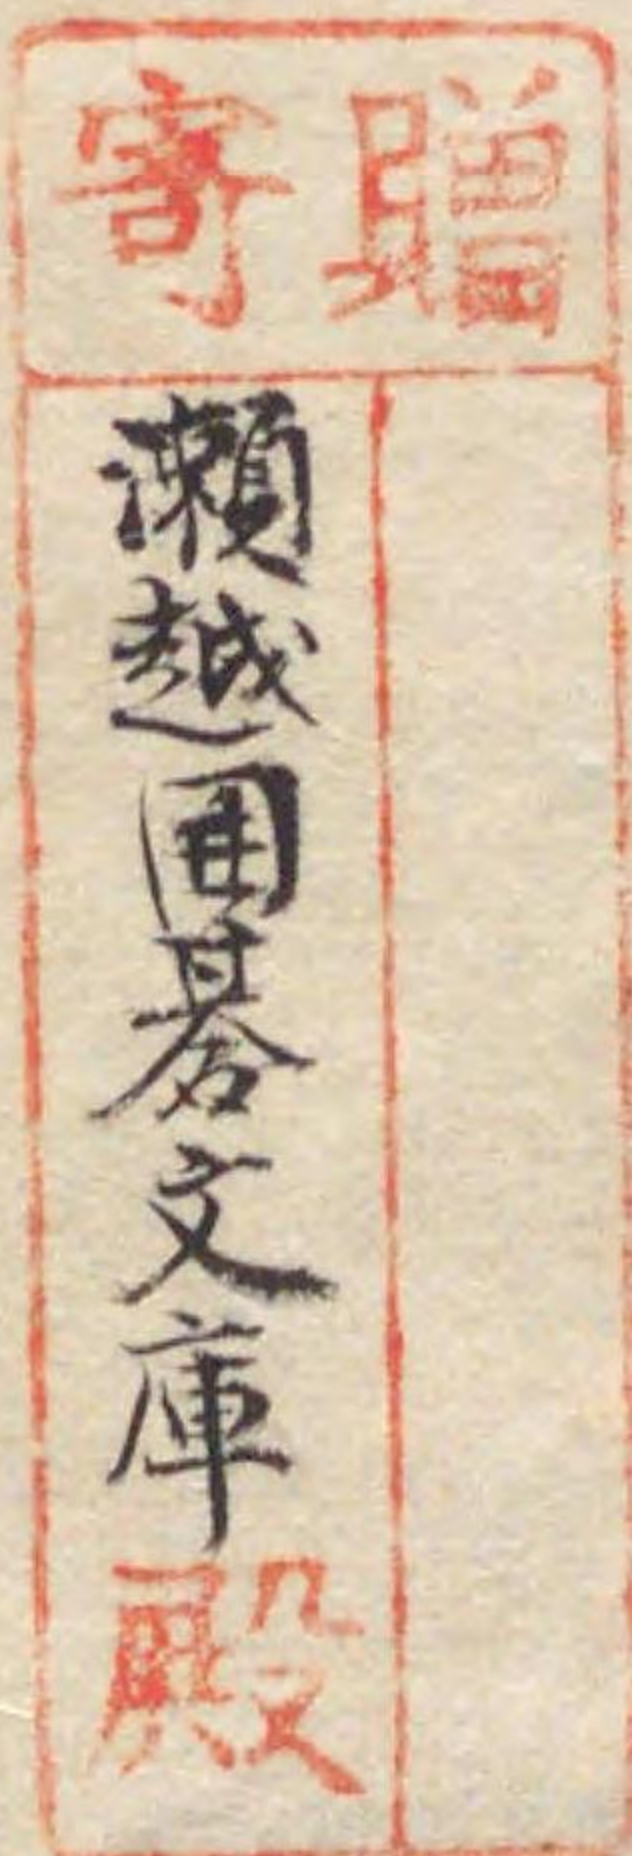 寄贈
瀬越囲碁文庫殿